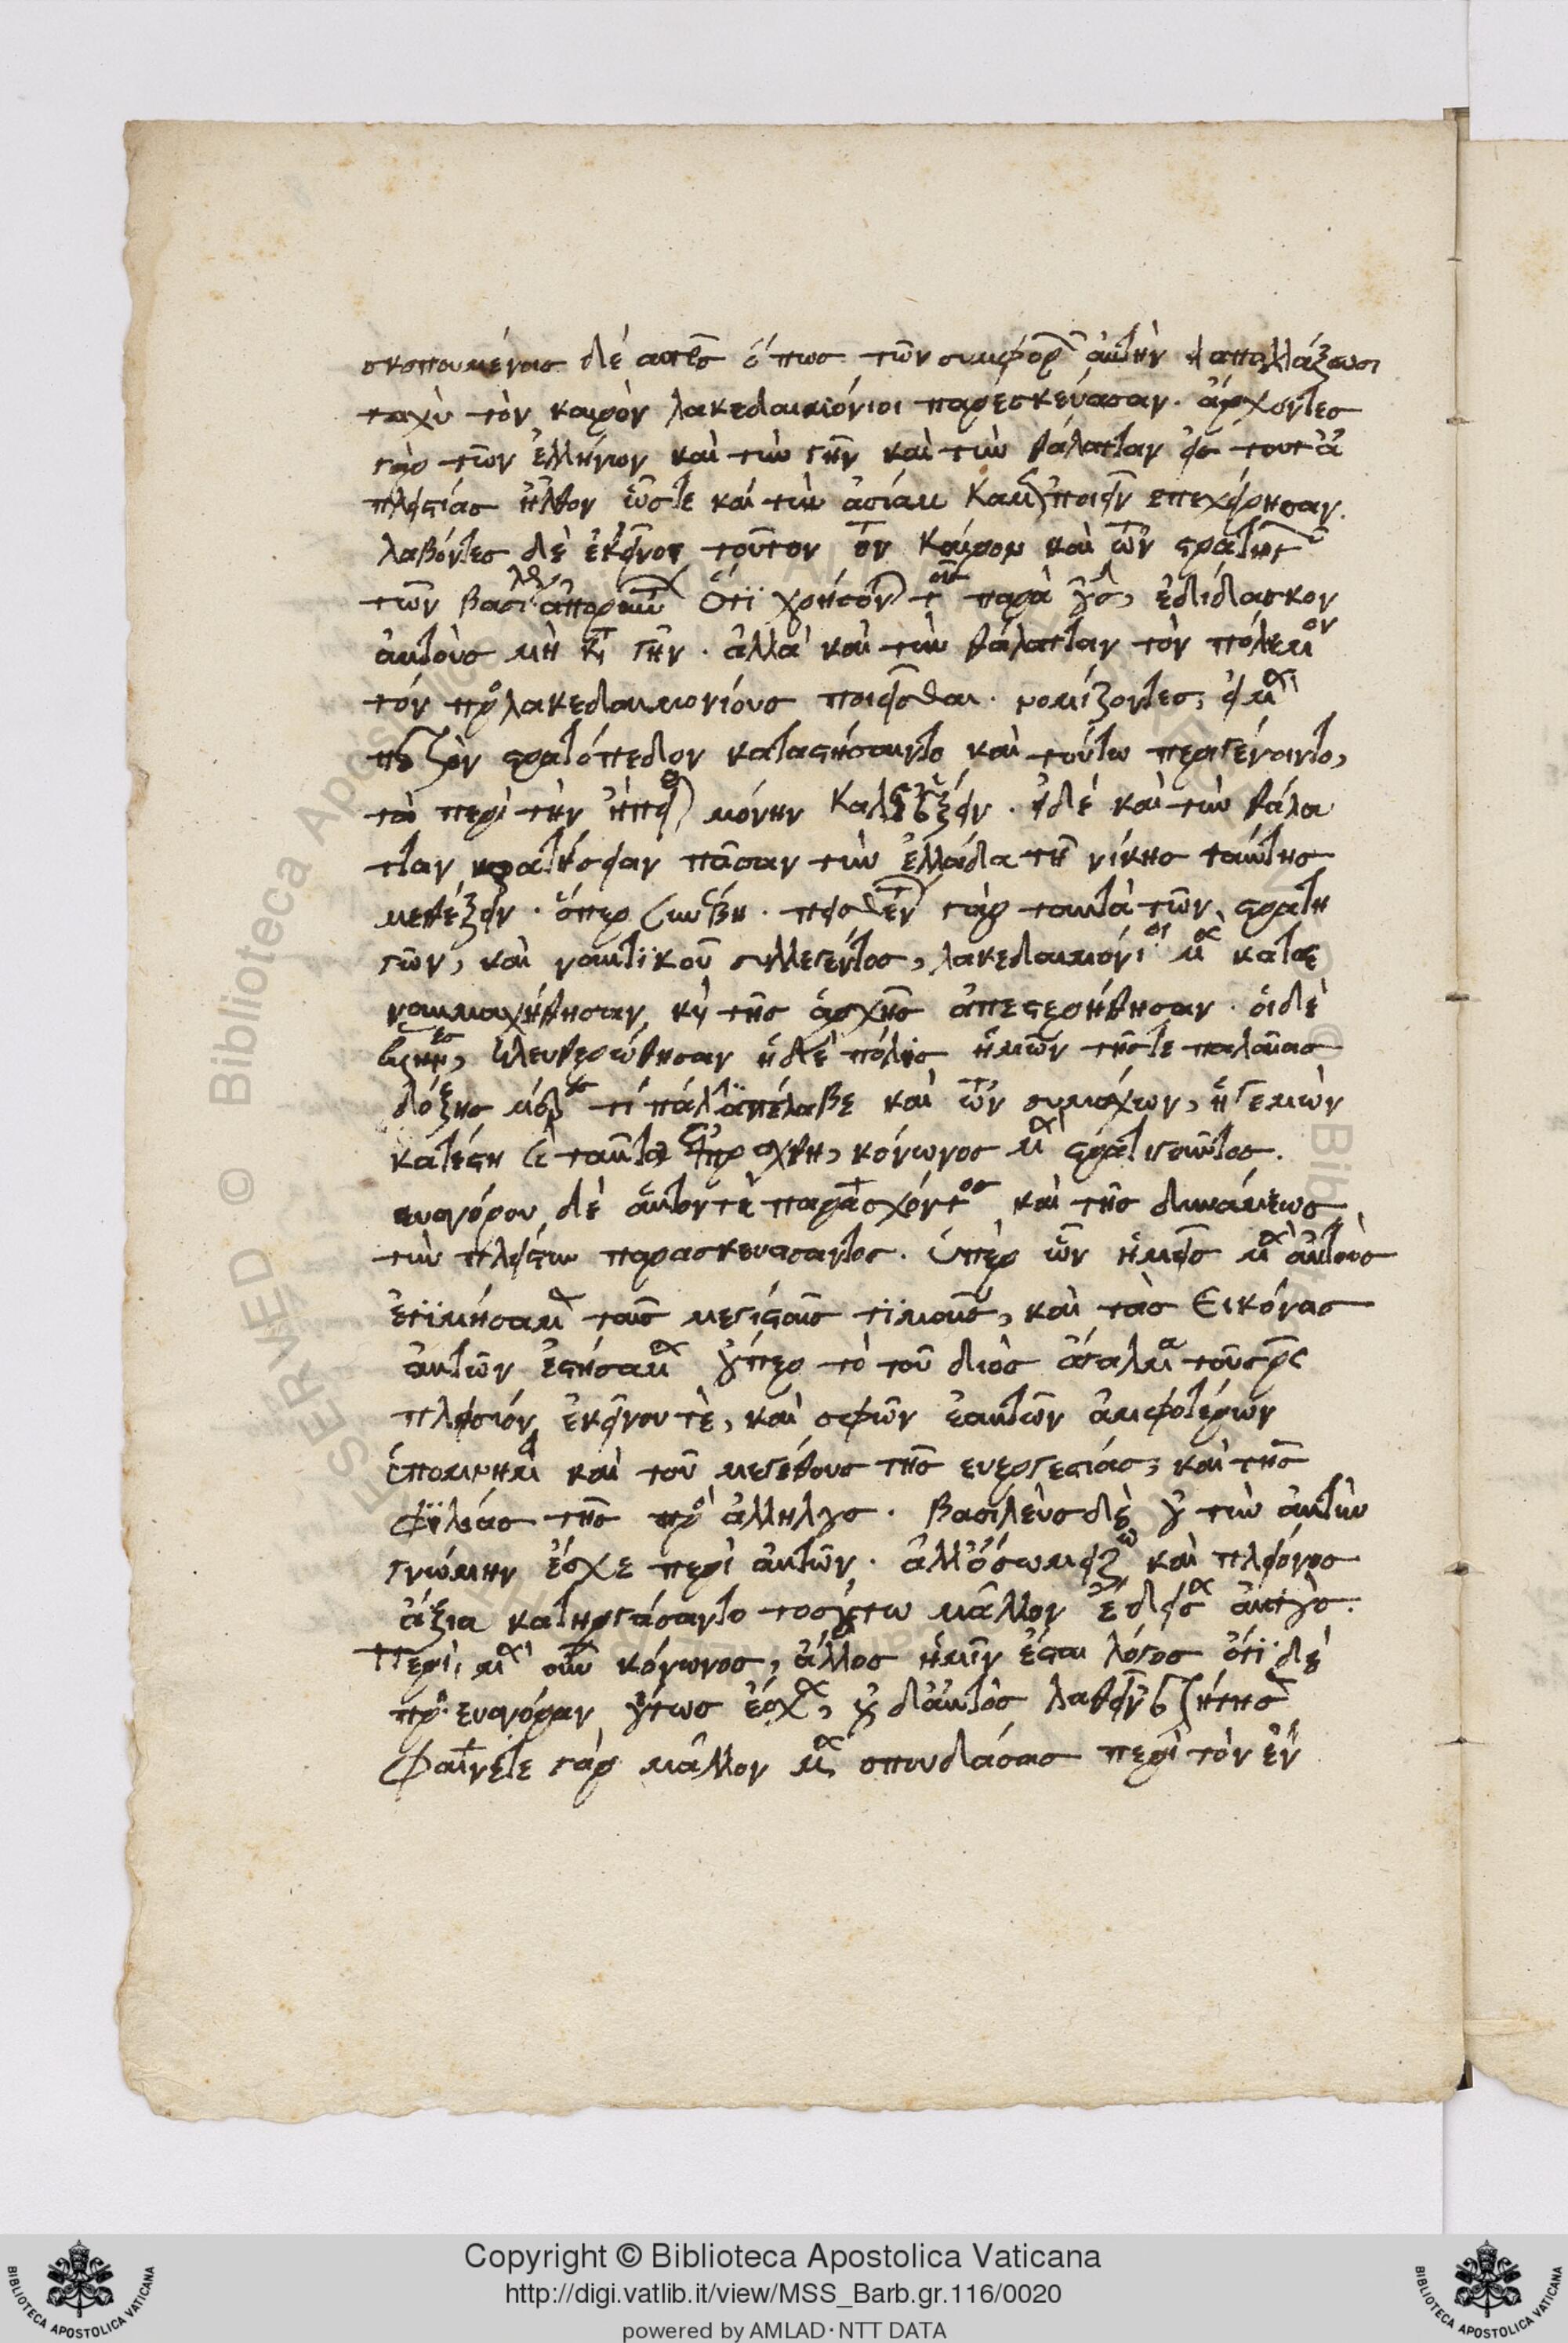 σκοπουμένοις δέ αυτοῖς ὅπως τῶν συμφορῶν ἀυτὴν ἀπαλλάξωσι
ταχὺ τὸν καιρὸν λακεδαιμόνιοι παρέσκεύασαν. ἄρχοντες
γὰρ τῶν ἑλλήνων καὶ τὴν γῆν καὶ τὴν θάλατταν εἰς τοῦτ ἀ
πληστίας ἦλθον ὥστε καὶ τὴν ἀσίαν κακῶς ποιεῖν επεχείρησαν.
λαβόντες δὲ ἐκεῖνοι τοῦτον τὸν καιρον καὶ τῶν στρατηγῶν
τῶν βασιλέως ἀπορούντων ὅτι χρήσονται τοῖς παρὰ
ἐδίδασκον
ἀυτοὺς μὴ κατὰ γῆν. ἀλλὰ κατὰ τὴν θάλατταν τὸν πόλεμον
τὸν πρὸς λακεδαιμονίους ποιεῖσθαι. νομίζοντες, εἰ μὲν
πεζὸν στρατόπεδον καταστήσαιντο καὶ τούτω περιγένοιντο,
τὰ περὶ τὴν ἤπειρον μόνην καλῶς ἕξειν. εἰ δὲ κατὰ τὴν θάλα
τταν κρατήσειαν πᾶσαν τὴν ἑλλάδα τῆς νίκης ταύτης
μεθέξειν. ὅπερ συνέβη. πεισθέντων γὰρ ταυτὰ τῶν στρατη
γῶν, καὶ ναυτικοῦ συλλεγέντος, λακεδαιμόνιοι μὲν κατε
ναυμαχήθησαν καὶ τῆς ἀρχῆς ἀπεστερήθησαν. οἱ δὲ
ἕλληνες, ἠλευθερώθησαν ἡ δὲ πόλις ἡμῶν τῆς τε παλαιᾶς
δόξης μέρος τί πάλιν ἀπέλαβε καὶ τῶν συμμάχων, ἡγεμὼν
κατέστη καὶ ταῦτα ἐπράχθη, κόνωνος μὲν στρατηγοῦντος.
ευαγόρου δὲ ἀυτόν τε παρασχόντος καὶ τῆς δυνάμεως
τὴν πλείστην παρασκευασαντος. ὑπὲρ ὧν ἡμεῖς μὲν ἀυτοὺς
ἐτιμήσαμεν ταῖς μεγίσταις τιμαῖς, καὶ τὰς εικόνας
ἀυτῶν ἐστήσαμεν οὗπερ τὸ τοῦ διὸς ἄγαλμα τοῦ σωτῆρος
πλησιόν ἐκείνου τὲ, καὶ σφῶν ἑαυτῶν ἀμφοτέρων
ὑπομνημα καὶ τοῦ μεγέθους τῆς ευεργεσίας, καὶ τῆς
φιλίας τῆς πρὸς ἀλλήλους. βασιλεὺς δὲ οὐ τὴν ἀυτὴν
γνώμην ἔσχε περὶ ἀυτῶν. ἀλλ ὅσω μείζω καὶ πλείονος
ἄξια κατηργάσαντο τοσούτω μᾶλλον ἔδεισεν ἀυτούς.
Περὶ μὲν οὖν κόνωνος, ἄλλος ἡμῖν ἔσται λόγος ὅτι δὲ
πρὸς ευαγόραν οὕτως ἔσχεν, οὐδ ἀυτὸς λαθεῖν ἐζήτησε
Φαίνεται γὰρ μᾶλλον μὲν σπουδάσας περὶ τὸν ἐν
Copyright © Biblioteca Apostolica Vaticana
http://digi.vatlib.it/view/MSS_Barb.gr.116/0020
powered by AMLAD · NTT DATA